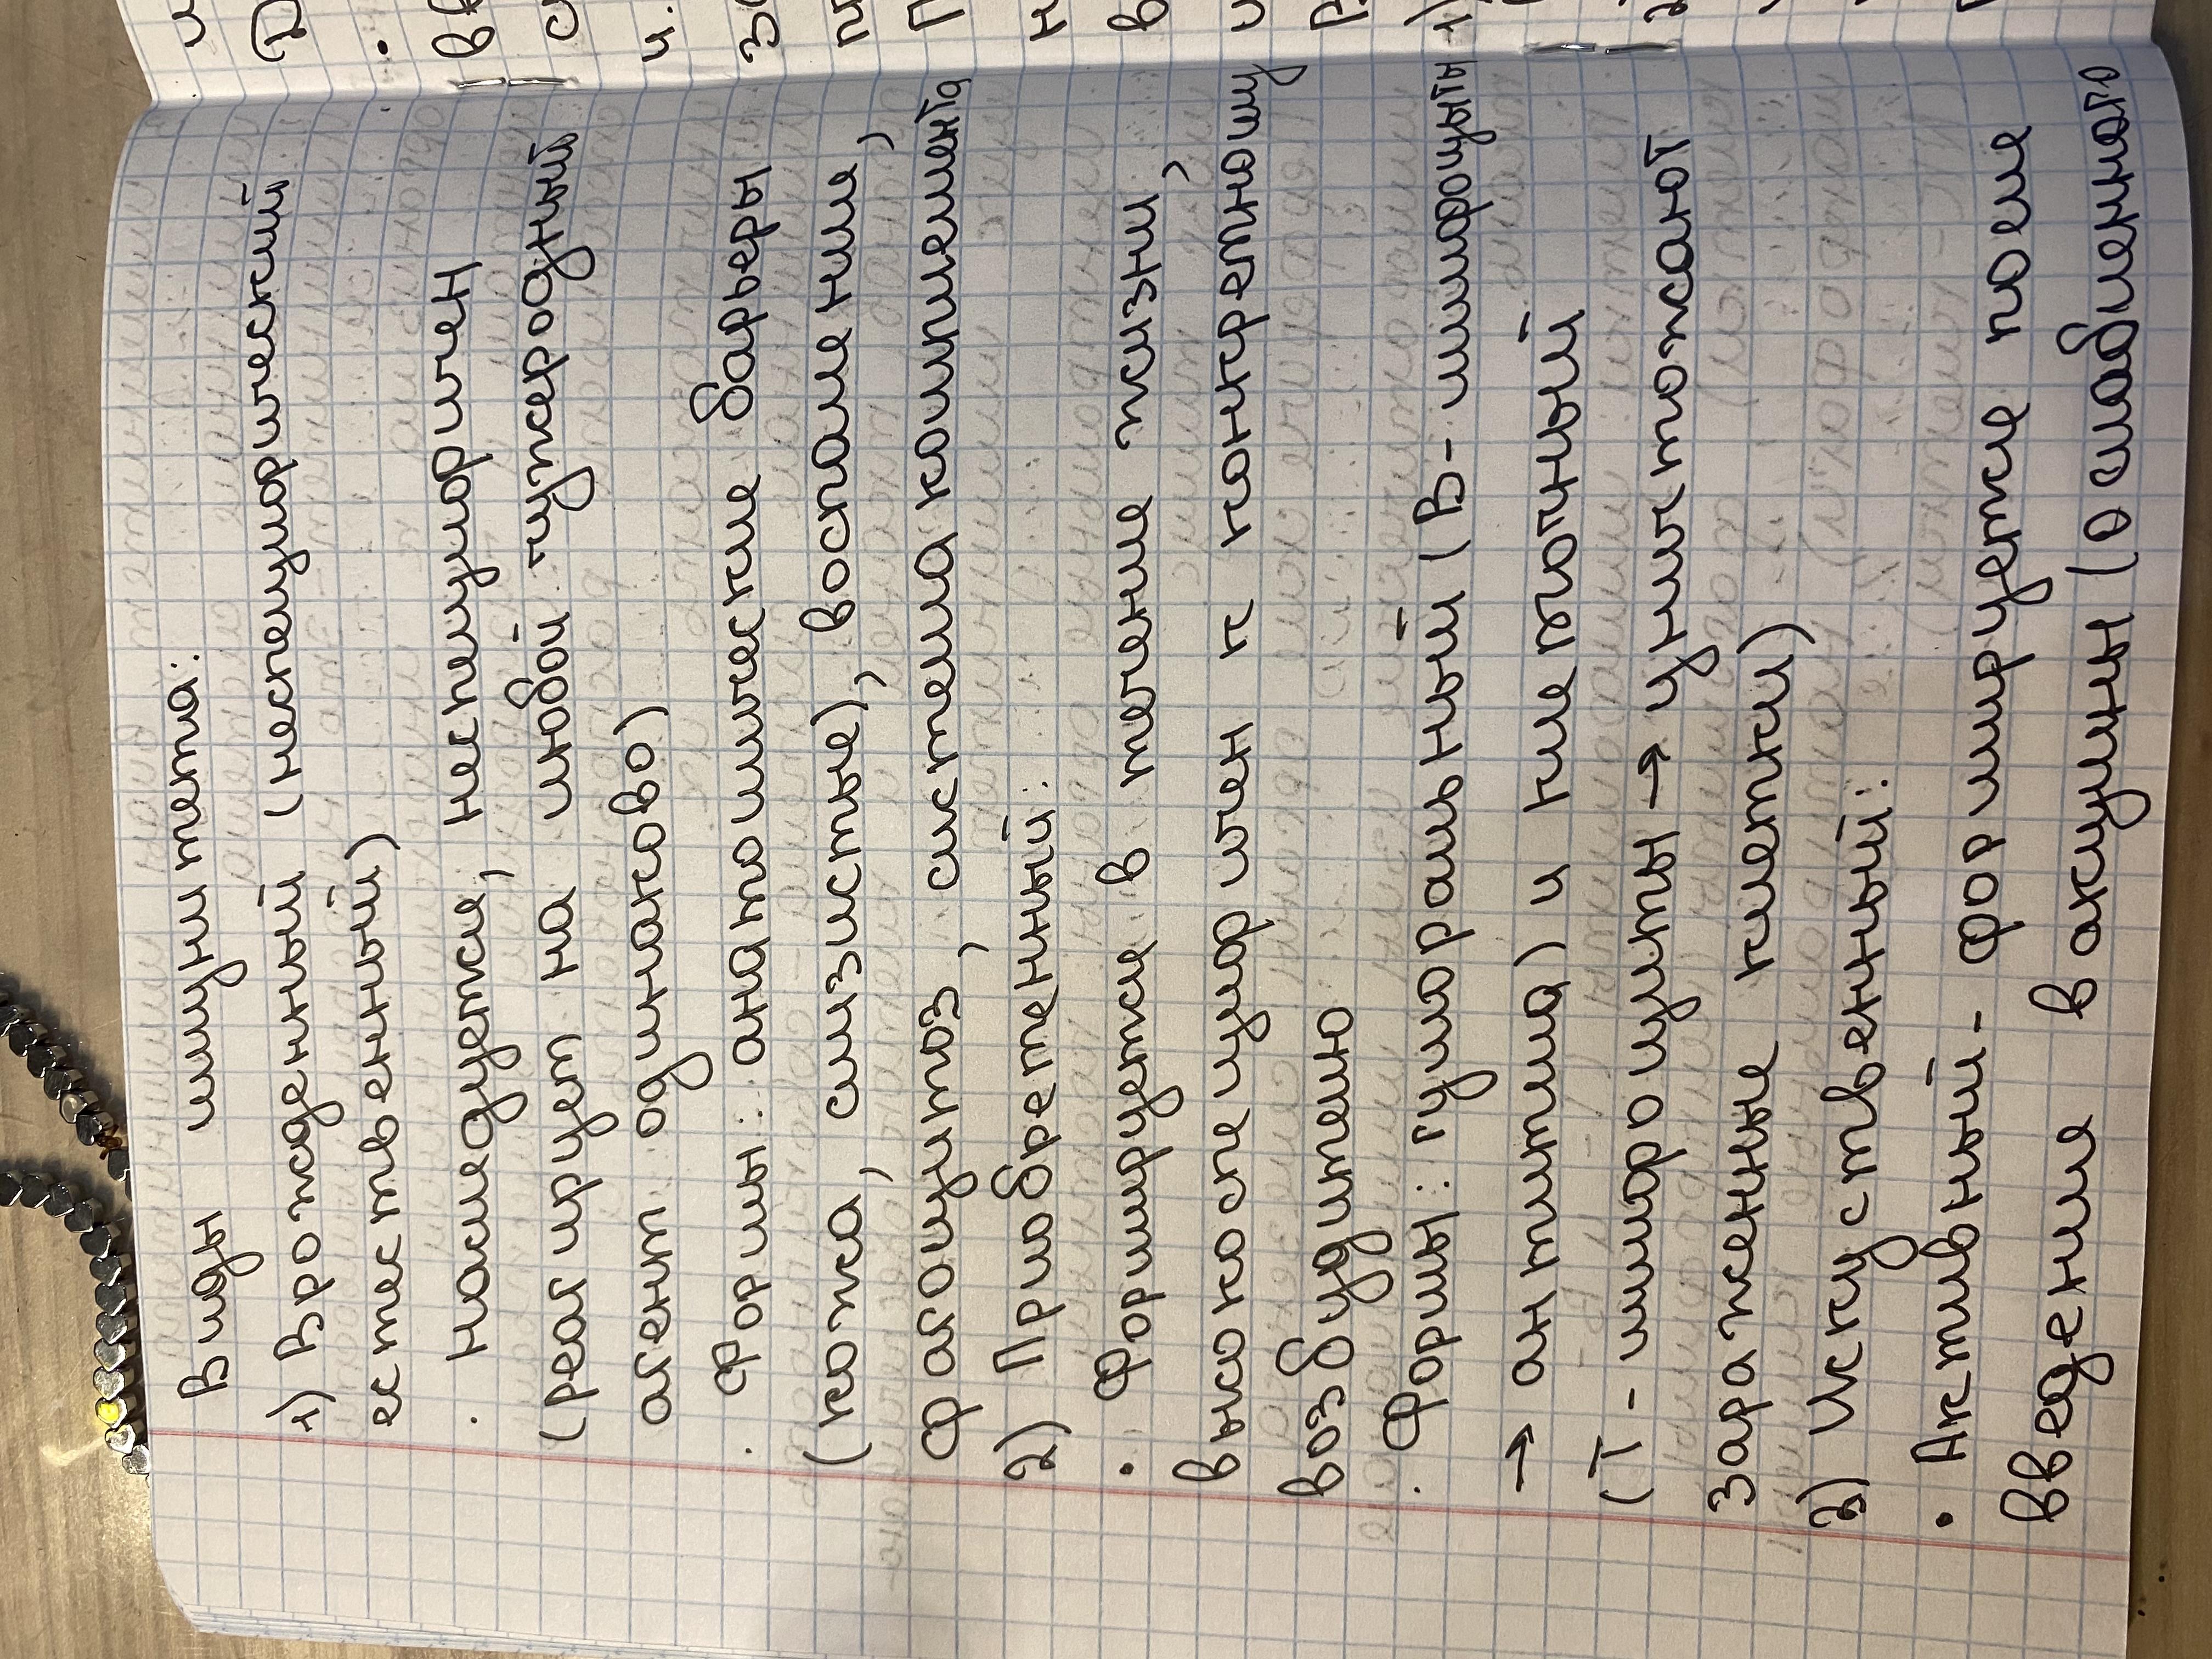 Виды иммунитета:
1) Врожденный (неспецифический
естественный)
. наследуется, неспецифичен
(реагирует на любой чужеродный
агент одинаково)
. Формы: анатомические барьеры
(кожа, слизистые), воспаление,
фагоцитоз, система комплемента
2) Приобретенный:
• Формируется в течение жизни,
высокоспецифичен к конкретному
возбудителю
. Формы: гуморальный (В-лимфоциты
→ антитела) и клеточный
(Т-лимфоциты → уничтожают
зараженные клетки)
3) Искуственный:
• Активный - формируется после
введения вакцины (ослабленного